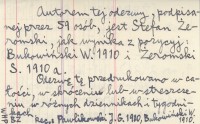 Autorem tej odezwy, podpisa-
nej przez 59 osób, jest Stefan Że-
romski, jak wynika z pozycyj:
Bukowiński W. 1910 i Żeromski
S. 1910 a.
Odezwę tę przedrukowano w ca-
łości, w skróceniu lub w streszcze-
niu w różnych dziennikach i tygodni-
kach
Pawlikowski J. G. 1910, Bukowiński W.
1910.